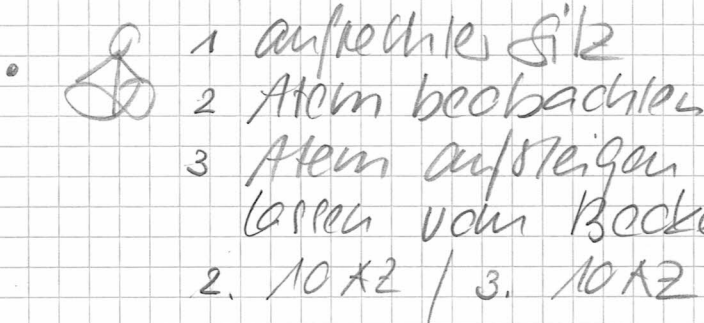 1 aufrechter Sitz
2 Atem beobachten
3 Atem aufsteigen
lassen vom Becke
2. 10 AZ / 3. 10 AZ